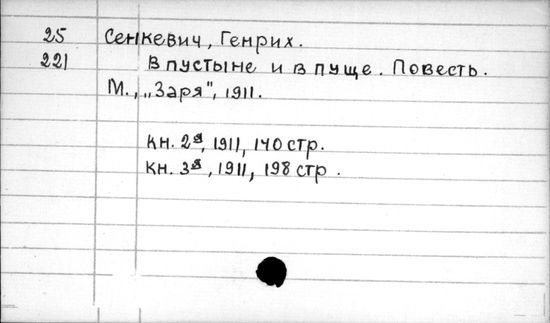 25 Сенкевич, Генрих.
221 В пустыне и в пуще. Повесть.
М., „Заря", 1911.
кн. 2я, 1911, 140 стр.
кн. 3я, 1911, 198 стр.